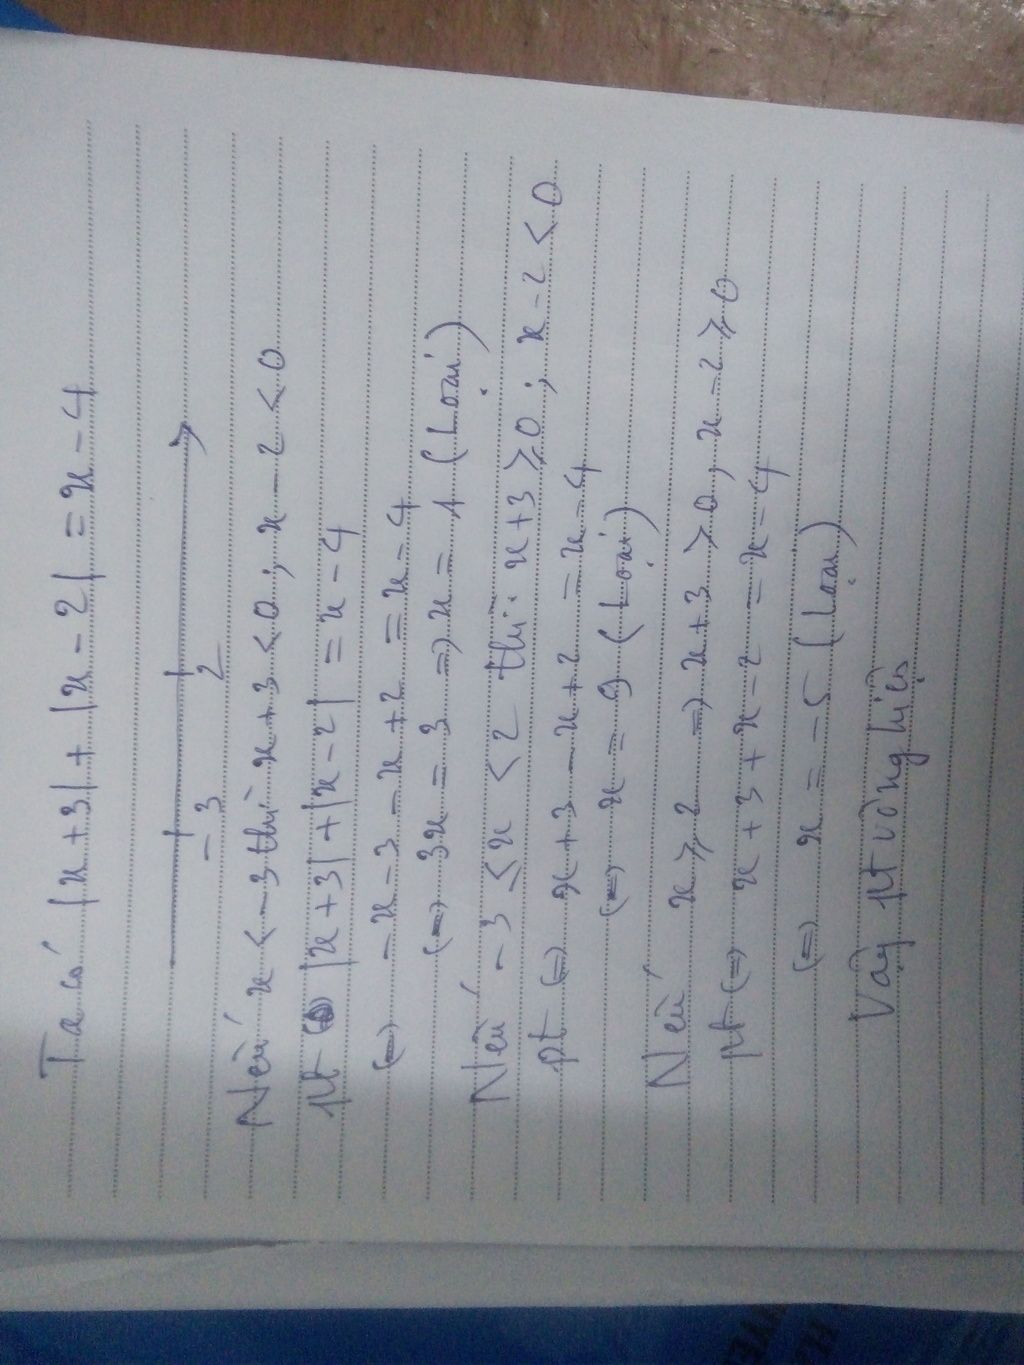 Ta có |x+3| + |x-2| = x-4
-3 2
Nếu x < -3 thì x+3 <0; x-2 <0
pt |x+3|+|x-2| = x-4
(=) -x-3 -x+2 = x-4
(=) 3x = 3 =) x = 1 (Loại)
Nếu -3 ≤ x < 2 thì: x+3 ≥ 0; x-2 < 0
pt (=) x+3-x+2 = x-4
(=) x = 9 (Loại)
Nếu x ≥ 2 =) x+3 > 0, x-2 ≥ 0
pt (=) x+3+x-2 = x-4
(=) x = -5 (Loại)
Vậy pt vô nghiệm